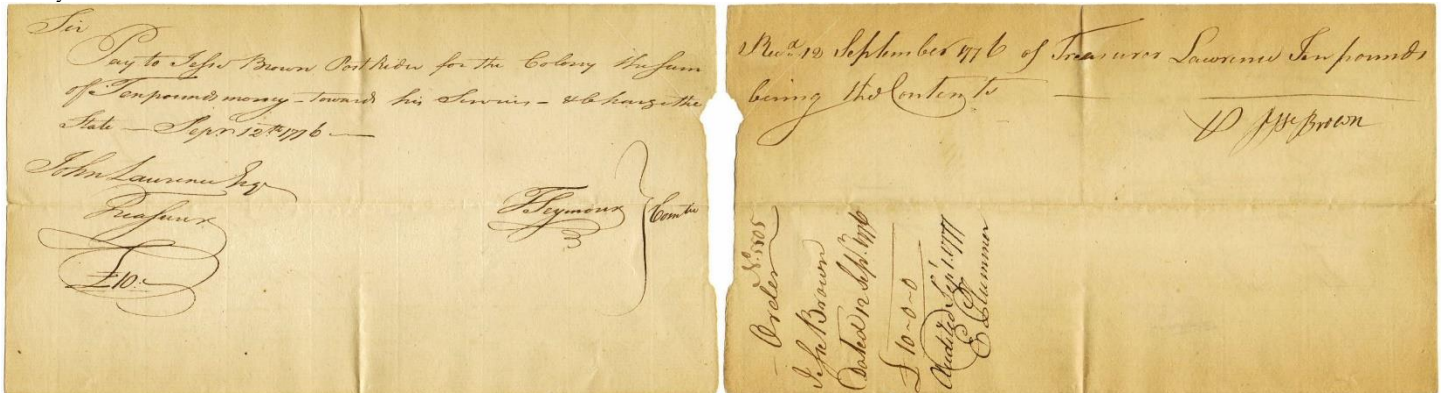 Sir
Pay to Jesse Brown Post Rider for the Colony the Sum
of Ten pounds money – towards his Service – & Charge the
State – Sepr 12th 1776 –
John Lawrence Esqr
Treasurer
£10 –
T Seymour } Comtee
Recd 12 September 1776 of Treasurer Lawrence Ten pounds
being the Contents –
Jesse Brown
Order
Jesse Brown
Dated 12 Sept. 1776
£10-0-0
Audited Sept. 1777